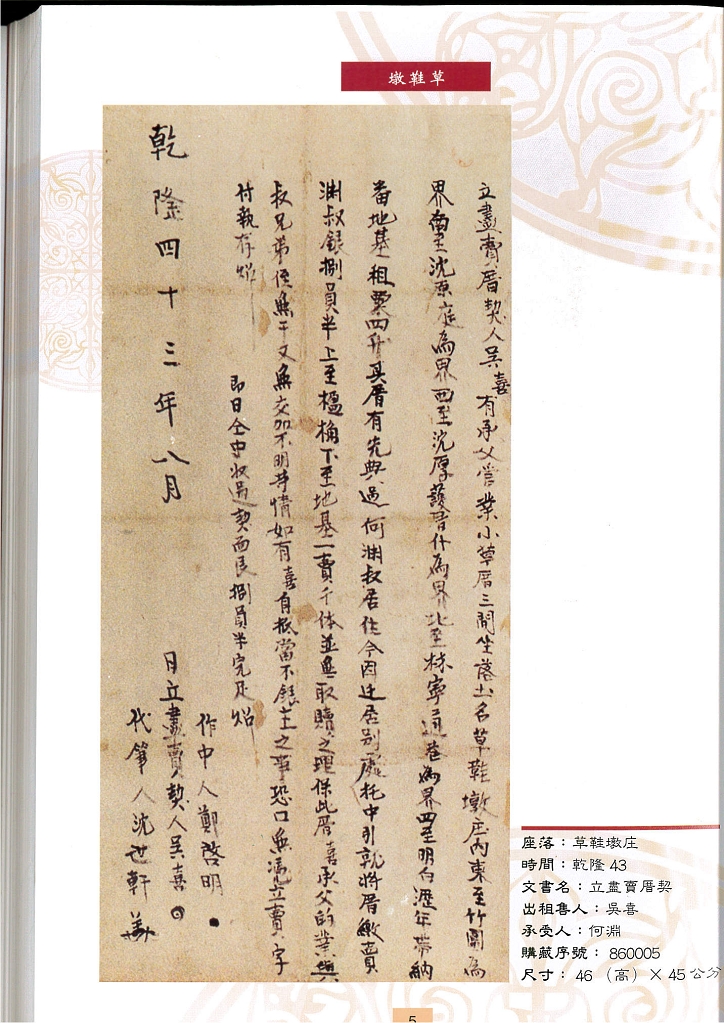 草鞋墩
立盡賣厝契人吳喜有承父管業小草厝三間坐落土名草鞋墩庄內東至竹圍為
界南至沈原庭為界西至沈厚護厝什為界北至林寧通巷為界四至明白遞年帶納
番地基租粟四升其厝有先典過何淵叔居住今因迁居别處托中引就將厝繳賣
淵叔銀捌員半上至楹桷下至地基一賣千休並無取贖之理保此厝喜承父的業與
叔兄弟侄無干又無交加不明等情如有喜自抵當不銀主之事恐口無憑立賣字
付執存炤
即日仝中收過契面艮捌員半完足炤
作中人鄭啓明
乾隆四十三年八月 日立盡賣契人吳喜
代筆人沈世軒
座落：草鞋墩庄
時間：乾隆43
文書名：立盡賣厝契
出租售人：吳喜
承受人：何淵
購藏序號：860005
尺寸：46（高）×45公分
5